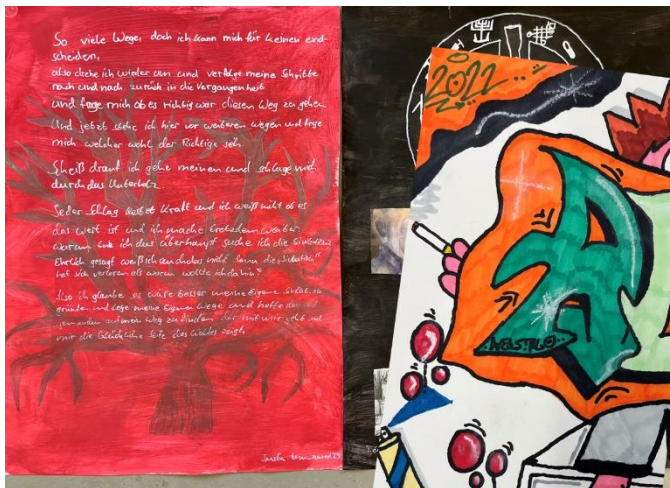 So viele Wege, doch ich kann mich für keinen ent-
scheiden,
also drehe ich wieder um und verfolge meine Schritte
nach und nach zurück in die Vergangenheit
und frage mich ob es richtig war diesen Weg zu gehen
Und jetzt stehe ich hier vor weiteren wegen und frage
mich welcher wohl der Richtige sei.
Scheiß drauf ich gehe meinen und schlage mich
durch das Unterholz.
Jeder Schlag kostet Kraft und ich weiß nicht ob es
das wert ist und ich mache trotzdem weiter
warum tue ich das überhaupt suche ich die
Ehrlich gesagt weiß ich auch das nicht denn die
hat sich verloren als warum wollte ich dahin
Also ich glaube es wäre besser meine eigene zu
gründen und lege meine Eigenen Wege und hoffe
meinen Weg zu finden der mit mir geht und
mir die Glückliche Seite des Waldes zeigt
2022